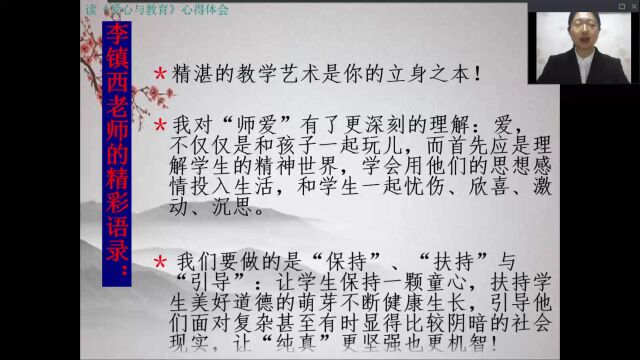 读《爱心与教育》心得体会
李镇西老师的精彩语录：
*精湛的教学艺术是你的立身之本！
*我对“师爱”有了更深刻的理解：爱，
不仅仅是和孩子一起玩儿，而首先应是理
解学生的精神世界，学会用他们的思想感
情投入生活，和学生一起忧伤、欣喜、激
动、沉思。
*我们要做的是“保持”、“扶持”与
“引导”：让学生保持一颗童心，扶持学
生美好道德的萌芽不断健康生长，引导他
们面对复杂甚至有时显得比较阴暗的社会
现实，让“纯真”更坚强也更机智！